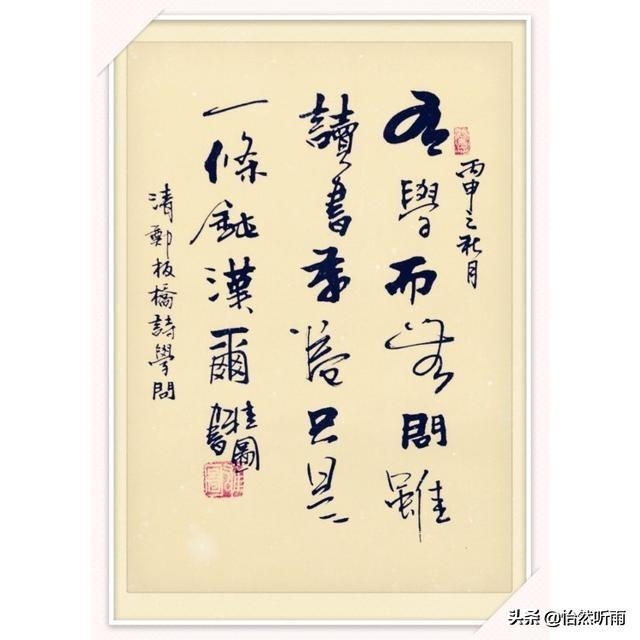 丙申之秋月
有學而無問雖
讀書萬卷只是
一條鈍漢爾
清鄭板橋詩學問
头条 @怡然听雨